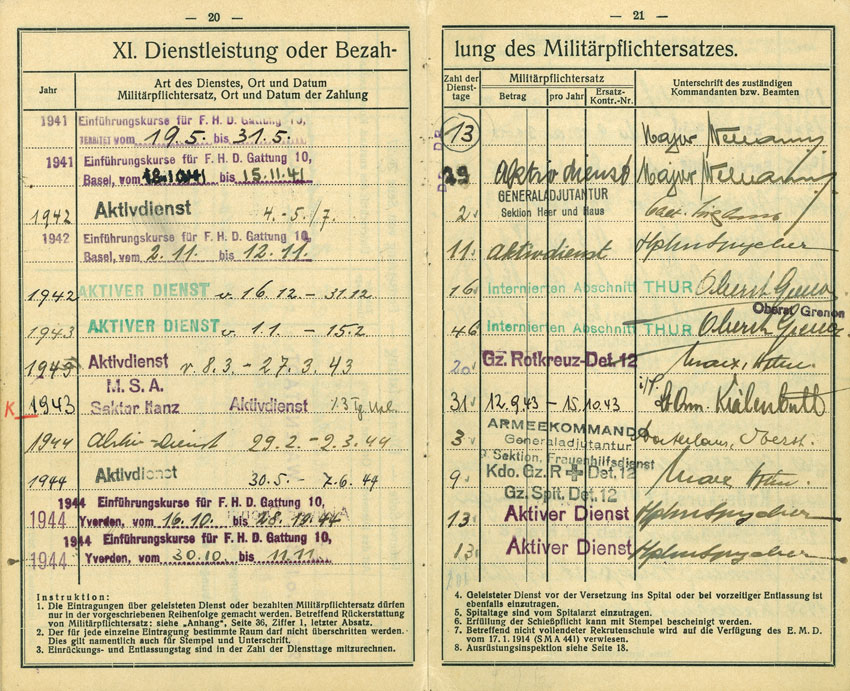 — 20 —
XI. Dienstleistung oder Bezah-
Jahr
Art des Dienstes, Ort und Datum
Militärpflichtersatz, Ort und Datum der Zahlung
1941 Einführungskurse für F. H. D. Gattung 10,
vom 19.5. bis 31.5.
1941 Einführungskurse für F. H. D. Gattung 10,
Basel, vom bis 15.11.41
1942 Aktivdienst 4.-5./7.
1942 Einführungskurse für F. H. D. Gattung 10,
Basel, vom 2.11. bis 12.11.
1942 AKTIVER DIENST v. 16.12. - 31.12
1943 AKTIVER DIENST v. 1.1. - 15.2.
1943 Aktivdienst v 8.3. - 27.3.43
M. S. A.
K 1943 Sektor Ilanz Aktivdienst
1944 Aktiv-Dienst 29.2. - 2.3.44
1944 Aktivdienst 30.5. - 7.6.44
1944 Einführungskurse für F. H. D. Gattung 10,
1944 Yverdon, vom 16.10. bis 28.10.44
1944 Einführungskurse für F. H. D. Gattung 10,
1944 Yverdon, vom 30.10. bis 11.11.
Instruktion:
1. Die Eintragungen über geleisteten Dienst oder bezahlten Militärpflichtersatz dürfen
nur in der vorgeschriebenen Reihenfolge gemacht werden. Betreffend Rückerstattung
von Militärpflichtersatz: siehe „Anhang“, Seite 36, Ziffer 1, letzter Absatz.
2. Der für jede einzelne Eintragung bestimmte Raum darf nicht überschritten werden.
Dies gilt namentlich auch für Stempel und Unterschrift.
3. Einrückungs- und Entlassungstag sind in der Zahl der Diensttage mitzurechnen.
— 21 —
lung des Militärpflichtersatzes.
Zahl der
Dienst-
tage
Militärpflichtersatz
Betrag
pro Jahr
Ersatz-
Kontr.-Nr.
Unterschrift des zuständigen
Kommandanten bzw. Beamten
13 Major
29 Aktivdienst Major
GENERALADJUTANTUR
2 Sektion Heer und Haus
11 Aktivdienst
16 Internierten Abschnitt THUR Oberst Grenon
Oberst Grenon
46 Internierten Abschnitt THUR Oberst Grenon
20 Gz. Rotkreuz-Det. 12
31 12.9.43 - 15.10.43
ARMEEKOMMANDO
Generaladjutantur
3 Oberst.
Sektion Frauenhilfsdienst
9 Kdo. Gz. R + Det. 12
Gz. Spit. Det. 12
13 Aktiver Dienst
13 Aktiver Dienst
4. Geleisteter Dienst vor der Versetzung ins Spital oder bei vorzeitiger Entlassung ist
ebenfalls einzutragen.
5. Spitaltage sind vom Spitalarzt einzutragen.
6. Erfüllung der Schießpflicht kann mit Stempel bescheinigt werden.
7. Betreffend nicht vollendeter Rekrutenschule wird auf die Verfügung des E. M. D.
vom 17. 1. 1914 (SMA 441) verwiesen.
8. Ausrüstungsinspektion siehe Seite 18.